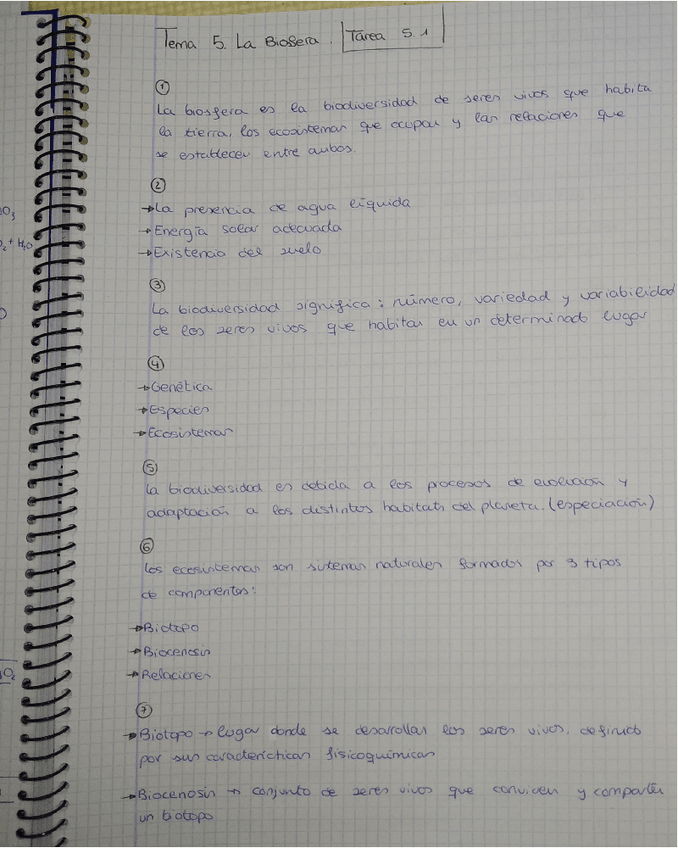 Tema 5. La Biosfera. Tarea 5.1
①
La biosfera es la biodiversidad de seres vivos que habita
la tierra, los ecosistemas que ocupan y las relaciones que
se establecen entre ambos.
②
→La presencia de agua líquida
→Energía solar adecuada
→Existencia del suelo
③
La biodiversidad significa: número, variedad y variabilidad
de los seres vivos que habitan en un determinado lugar
④
→Genética
→Especies
→Ecosistemas
⑤
La biodiversidad es debida a los procesos de evolución y
adaptación a los distintos habitats del planeta. (especiación)
⑥
Los ecosistemas son sistemas naturales formados por 3 tipos
de componentes:
→Biotopo
→Biocenosis
→Relaciones
⑦
→Biotopo → lugar donde se desarrollan los seres vivos, definido
por sus caracteríscticas fisicoquímicas
→Biocenosis → conjunto de seres vivos que conviven y comparten
un biotopo